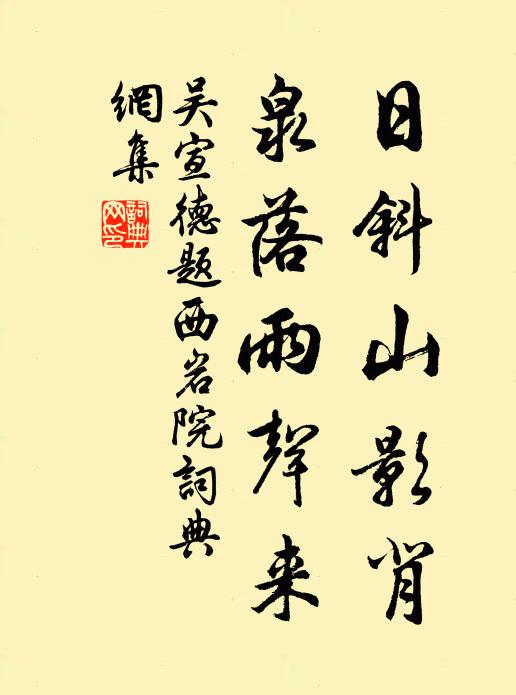 日斜山影肖
泉落雨聲来
吴宣德题西岩院詞典
網集
詞典
网印